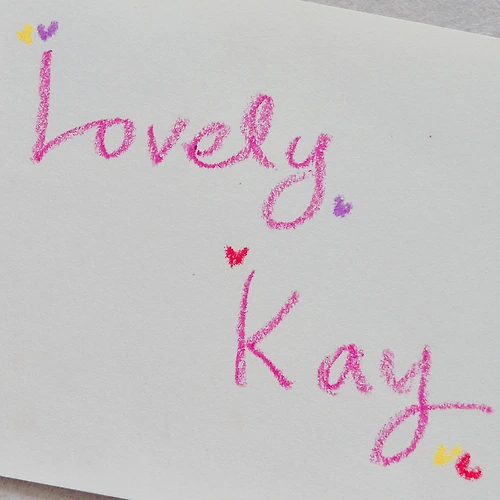 Lovely
Kay